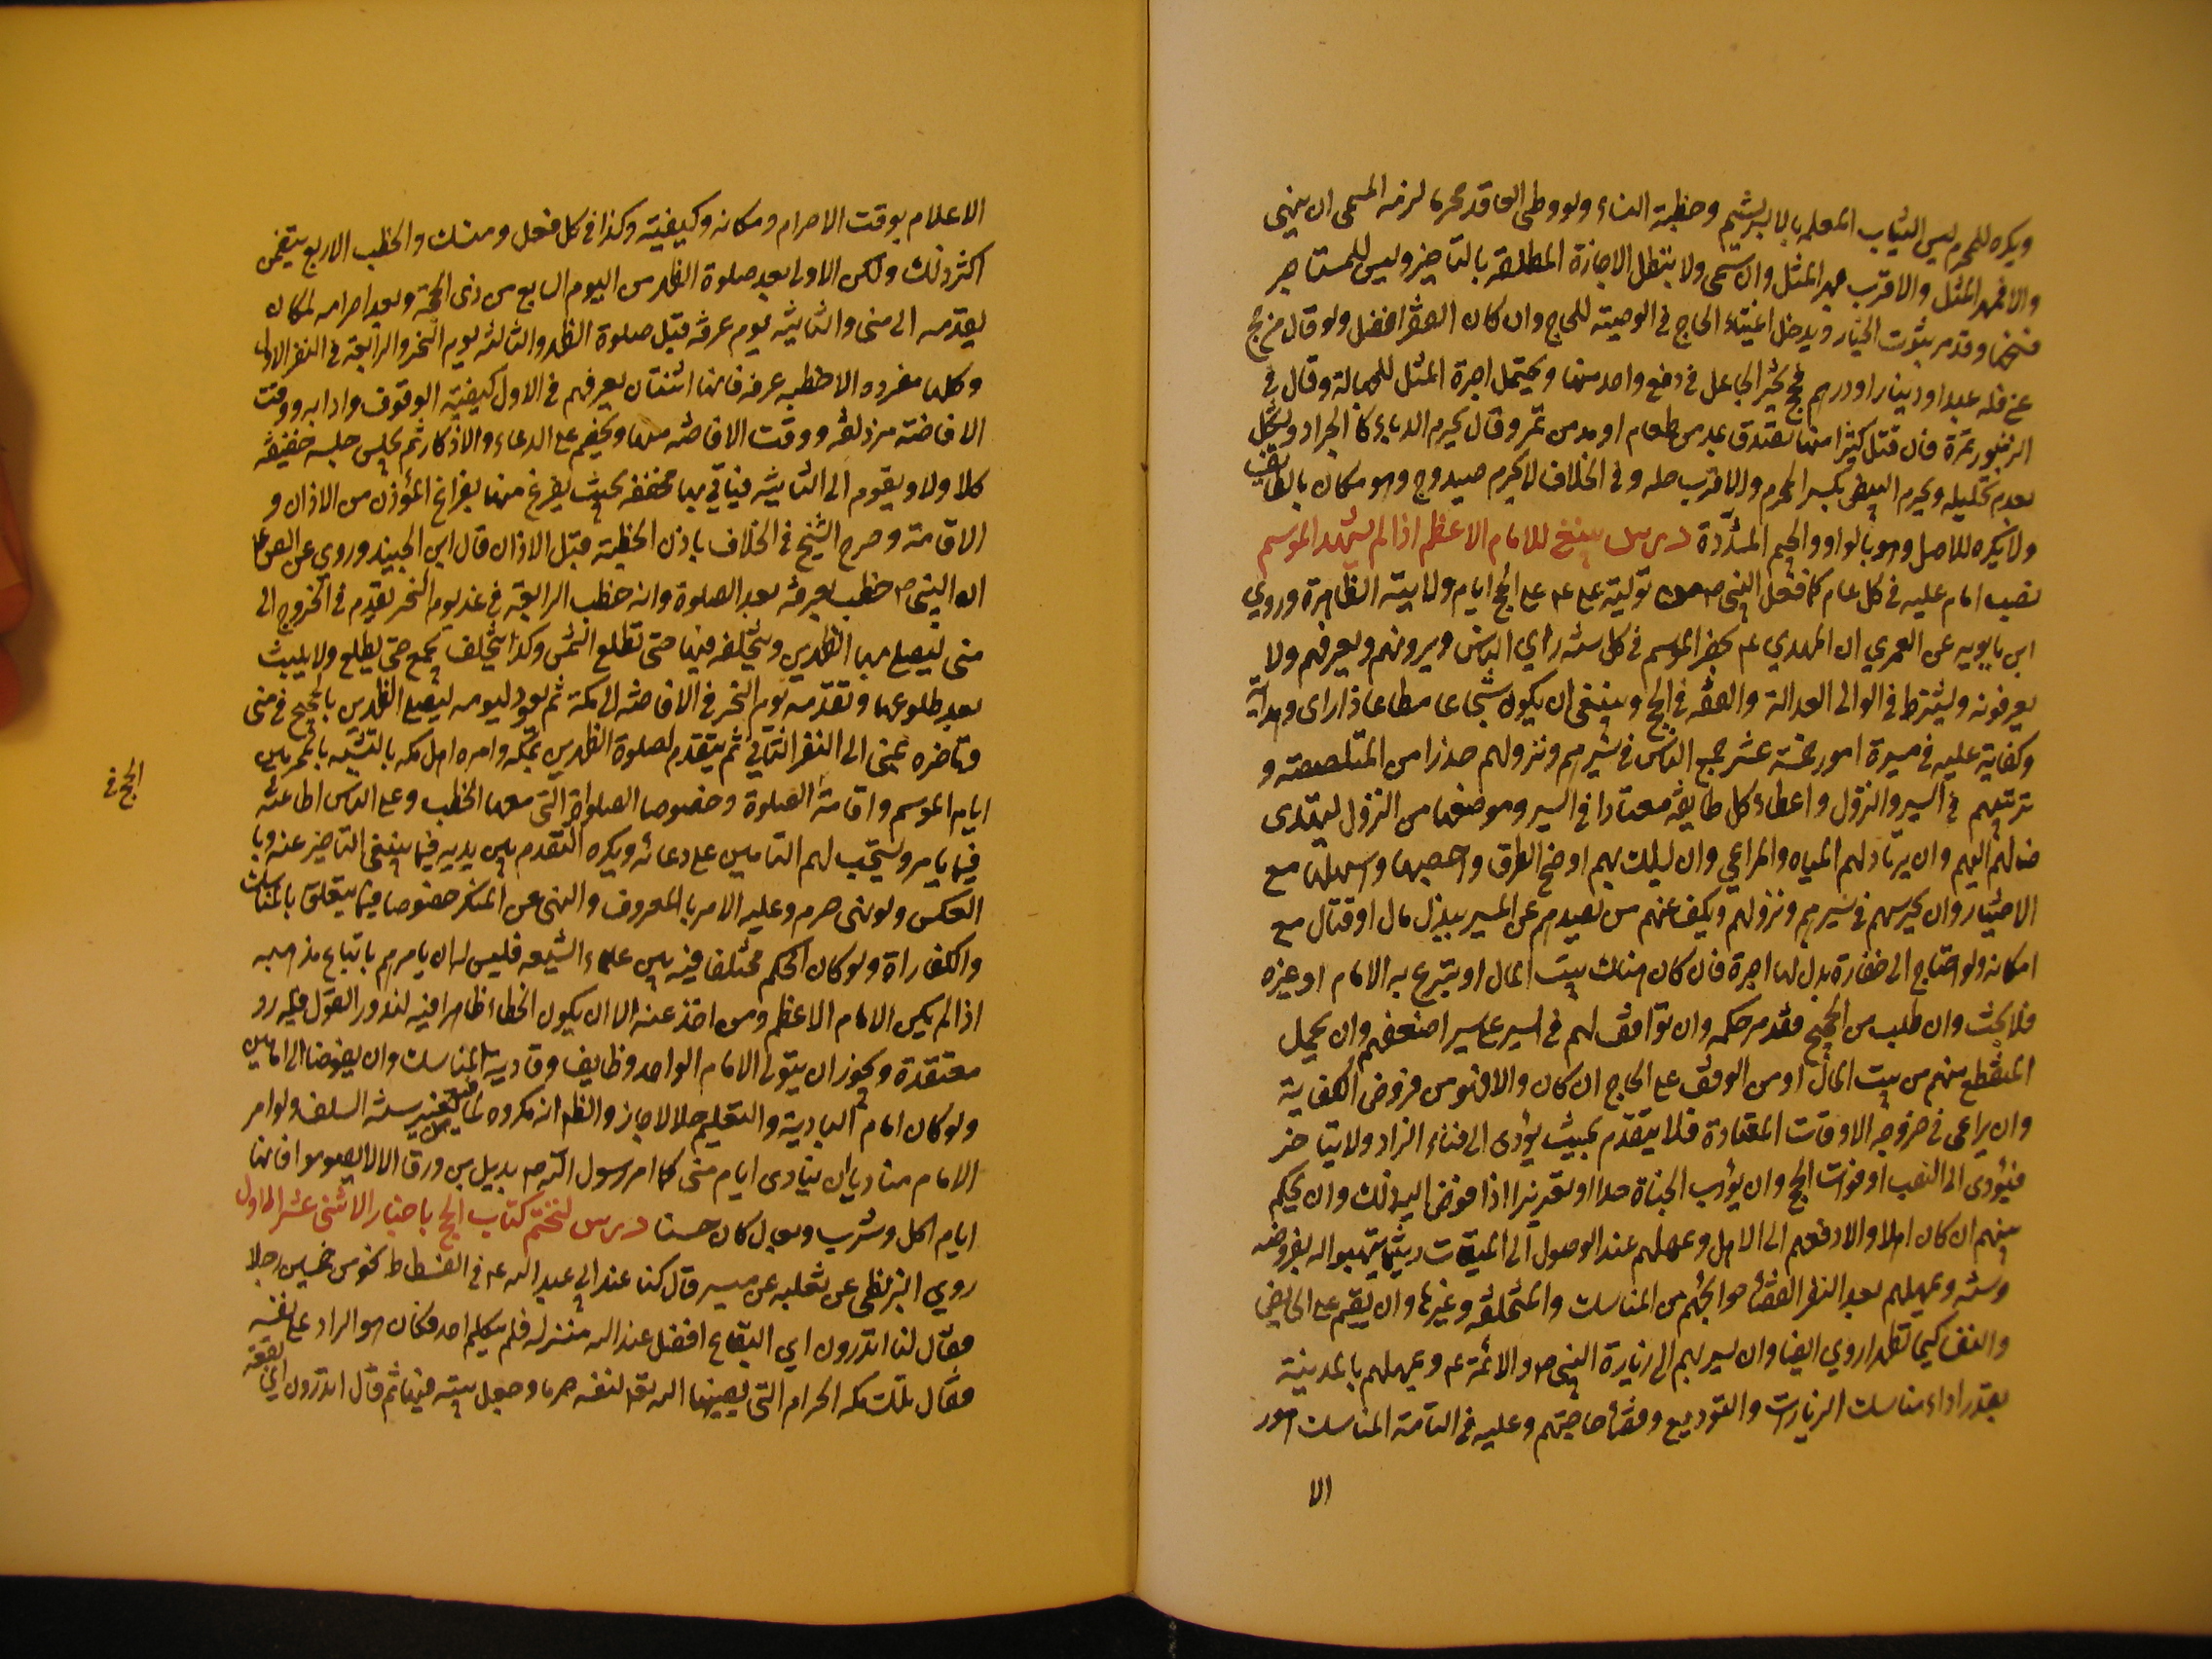 ويكره للمحرم لبس الثياب المعلمه بالابريشيم وخطبة النساء ولو وطى العاقد محرما لزمه المسمى ان سمى
والا فمهر المثل والاقرب مهر المثل وان سمى ولا يبطل الاجارة المطلقة بالتاخير وليس للمستاجر
فسخها وقد مر ثبوت الخيار ويدخل اغنياء الحاج في الوصية للحاج وان كان الفقراء افضل ولو قال من حج
عني فله عبد او دينار او درهم فحج تخير الجاعل في دفع واحد منها ويحتمل اجرة المثل للجهالة وقال في
الزنبور تمرة فان قتل كثيرا منها تصدق بمد من طعام او مد من تمر وقال يحرم الدباء كالجراد ويتحلل
بعدم تحليله ويحرم البيض بكسر المحرم والاقرب حله وفي الخلاف لا يحرم صيد وج وهو مكان بالطايف
ولا يكره للاصل وهو بالواو والجيم المشددة درس ينبغي للامام الاعظم اذا لم يشهد الموسم
نصب امام عليه في كل عام كما فعل النبي ص من تولية علي ع على الحج ايام ولايته الظاهرة وروي
ابن بابويه عن العمري ان المهدي ع يحضر الموسم في كل سنة راي الناس ويرونهم ويعرفهم ولا
يعرفونه ويشترط في الوالي العدالة والفقه في الحج وينبغي ان يكون شجاعا مطاعا ذا راى وهداية
وكفاية عليه في مسيرة امور خمسة عشر جمع الناس في سيرهم ونزولهم حذرا من المتلصصة و
ترتيبهم في السير والنزول واعطاء كل طايفة معتادا في السير وموضعها من النزول ليهتدى
ضالهم اليهم وان يرتاد لهم المياه والمراعي وان يسلك بهم اوضح الطرق واخصبها واسهلها مع
الاختيار وان يحرسهم في سيرهم ونزولهم ويكف عنهم من يصدهم عن المسير ببذل مال او قتال مع
امكانه ولو احتاج الى خفارة بذل لها اجرة فان كان هناك بيت المال او يتبرع به الامام او غيره
فلا بحث وان طلب من الحجيج فقد مر حكمه وان توافق لهم في السير على سير اضعفهم وان يحمل
المنقطع منهم من بيت المال او من الوقف على الحاج ان كان والا فهو من فروض الكفاية
وان يراعى في خروجه الاوقات المعتادة فلا يتقدم بحيث يؤدى الى فناء الزاد ولا يتاخر
فيؤدى الى النصب او فوات الحج وان يؤدب الجناة حدا او تعزيرا اذا فوض اليه ذلك وان يحكم
بينهم ان كان اهلا والا دفعهم الى الاهل ويمهلهم عند الوصول الى الميقات ريثما يتهيوا له بفروضه
وسننه ويمهلهم بعد النفر لقضاء حوائجهم من المناسك والمتخلفة وغيرها وان يقيم على الحايض
والنفساء كيما تطهرا روي ايضا وان يسير بهم الى زيارة النبي ص والائمة ع ويمهلهم بالمدينة
بقدر اداء مناسك الزيارات والتوديع وقضاء حاجتهم وعليه في اقامة المناسك امور
الا
الاعلام بوقت الاحرام ومكانه وكيفيته وكذا في كل فعل ومنسك والخطب الاربع يتضمن
اكثر ذلك ولكن الاولى بعد صلوة الظهر من اليوم السابع من ذى الحجة وبعد احرامه لمكان
تقدمه الى منى والثانية يوم عرفة قبل صلوة الظهر والثالثة يوم النحر والرابعة في النفر الاول
وكلها مفرده الا خطبه عرفه فانها اثنتان يعرفهم في الاول كيفية الوقوف وادابه ووقت
الافاضة من مزدلفة ووقت الافاضة منها ويحثهم على الدعاء والاذكار ثم يجلس جلسه خفيفة
كلا ولا ويقوم الى الثانية فياتي بها مخففه بحيث يفرغ منها بفراغ المؤذن من الاذان و
الاقامة وصرح الشيخ في الخلاف باذن الخطبة قبل الاذان قال ابن الجنيد وروي عن الص ع
ان النبي ص خطب بعرفة بعد الصلوة وانه خطب الرابعة في غد يوم النحر يقدم في الخروج الى
منى ليصلي بها الظهرين ويتخلفه فيها حتى تطلع الشمس وكذا يتخلف بجمع حتى يطلع ولا يلبث
بعد طلوعها وتقدمه يوم النحر في الافاضة الى مكة ثم يعود ليومه ليصلي الظهرين بالحجيج في منى
وتاخره بمنى الى النفر الثاني ثم يتقدم لصلوة الظهرين بمكة وامره اهل مكه بالتشبه بالمحرمين
الحج في
ايام الموسم واقامة الصلوة وخصوصا الصلواة التى معها الخطب وعلى الناس اطاعته
فيما يامر ويستحب لهم التامين على دعائه ويكره التقدم بين يديه فيما ينبغى التاخير عنه وبا
العكس ولو نهى حرم وعليه الامر بالمعروف والنهى عن المنكر خصوصا فيما يتعلق بالمناسك
والكفاراة ولو كان الحكم مختلفا فيه بين علماء الشيعه فليس له ان يامرهم باتباع مذهبه
اذا لم يكن الامام الاعظم ومن اخذ عنه الا ان يكون الخطاء ظاهرا فيه لندور القول فليرد
معتقدة ويجوز ان يتولى الامام الواحد وظايف وقادية المناسك وان يفوضا الى امامين
ولو كان امام البادية والتعليم حلالا جاز والظ انه مكروه لما فيه من تغيير سنة السلف ولو امر
الامام مناديا ان ينادى ايام منى كما امر رسول الله ص بديل بن ورقا الا لا يصوموا فانها
ايام اكل وشرب وبعال كان حسنا درس لنختم كتاب الحج باخبار الاثنى عشر الاول
روي البزنطى عن ثعلبه عن ميسر قال كنا عند ابي عبد الله ع في الفسطاط نحو من خمسين رجلا
فقال لنا اتدرون اي البقاع افضل عند الله منزلة فلم يتكلم احد فكان هو الراد على نفسه
فقال تلك مكه الحرام التى رضيها الله تعالى لنفسه حرما وجعل بيته فيها ثم قال اتدرون اي بقعة